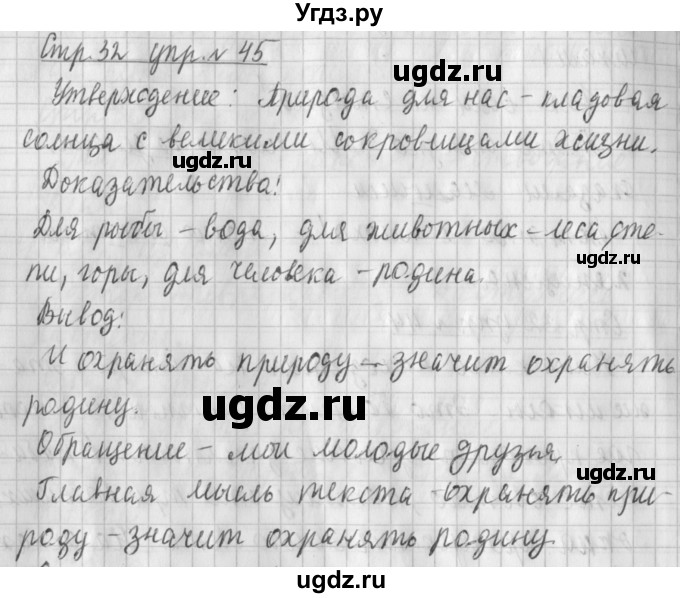 Угдз.ру
Стр. 32 упр. № 45
ugdz.ru
Утверждение: Природа для нас – кладовая
солнца с великими сокровищами жизни.
ugdz.ru
Доказательства:
Для рыбы – вода, для животных – леса, сте-
ugdz.ru
пи, горы, для человека – родина.
Вывод:
И охранять природу – значит охранять
родину.
ugdz.ru
Обращение – мои молодые друзья.
ugdz.ru
Главная мысль текста – охранять при-
роду – значит охранять родину.
ugdz.ru
ugdz.ru